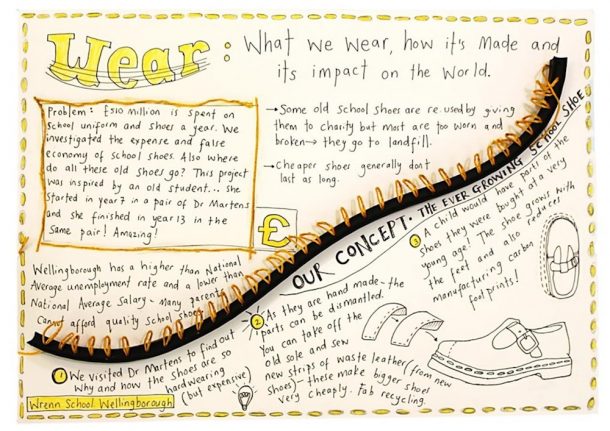 Wear:
What we wear, how it's made and
its impact on the World.
Problem: £510 million is spent on
School uniform and shoes a year. We
investigated the expense and false
economy of school shoes. Also where
do all these old shoes go? This project
was inspired by an old student... she
started in year 7 in a pair of Dr Martens
and she finished in year 13 in the
same pair! Amazing!
→ Some old school shoes are re used by giving
them to charity but most are too worn and
broken → they go to landfill.
→ Cheaper shoes generally don't
last as long.
£
Wellingborough has a higher than National
Average unemployment rate and a lower than
National Average Salary - many parents
cannot afford quality school shoes
OUR CONCEPT · THE EVER GROWING SCHOOL SHOE
① We visited Dr Martens to find out
why and how the shoes are so
hardwearing
(but expensive)
Wrenn School Wellingborough
② As they are hand made - the
parts can be dismantled.
You can take off the
old sole and sew
new strips of waste leather (from new
shoes) - these make bigger shoes
very cheaply. Fab recycling.
③ A child would have parts of the
shoes they were bought at a very
young age! The shoe grows with
the feet and also reduces
manufacturing carbon
foot prints!